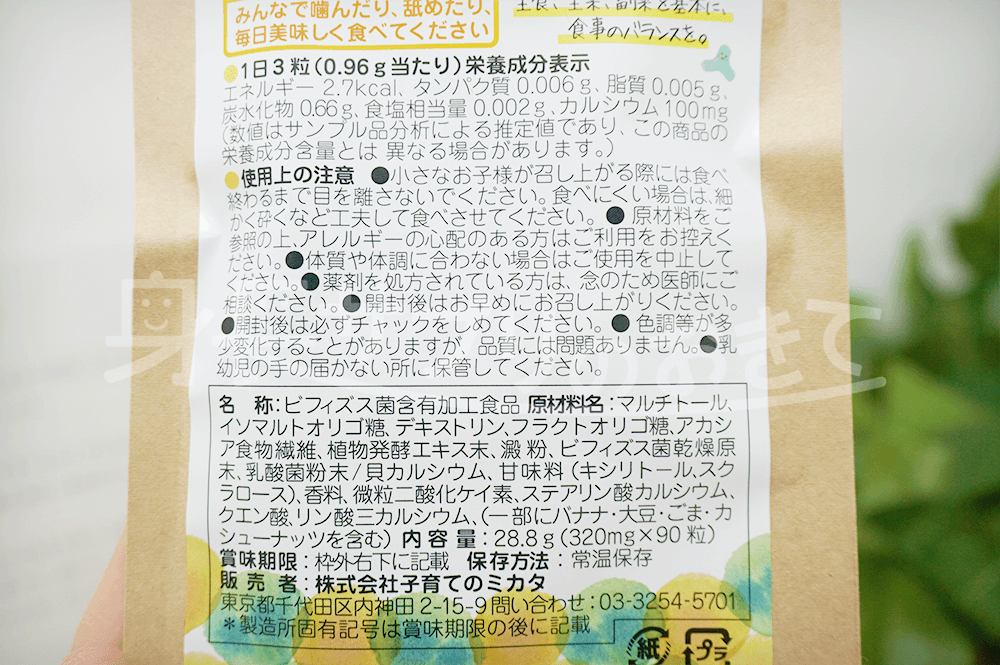 みんなで噛んだり、舐めたり、
毎日美味しく食べてください
主食、主菜、副菜を基本に、
食事のバランスを。
●1日3粒(0.96g当たり)栄養成分表示
エネルギー 2.7kcal、タンパク質 0.006g、脂質 0.005g、
炭水化物 0.66g、食塩相当量 0.002g、カルシウム 100mg
(数値はサンプル品分析による推定値であり、この商品の
栄養成分含量とは 異なる場合があります。)
●使用上の注意 ●小さなお子様が召し上がる際には食べ
終わるまで目を離さないでください。食べにくい場合は、細
かく砕くなど工夫して食べさせてください。● 原材料をご
参照の上、アレルギーの心配のある方はご利用をお控えく
ださい。●体質や体調に合わない場合はご使用を中止して
ください。●薬剤を処方されている方は、念のため医師にご
相談ください。●開封後はお早めにお召し上がりください。
●開封後は必ずチャックをしめてください。● 色調等が多
少変化することがありますが、品質には問題ありません。●乳
幼児の手の届かない所に保管してください。
名 称:ビフィズス菌含有加工食品 原材料名:マルチトール、
イソマルトオリゴ糖、デキストリン、フラクトオリゴ糖、アカシ
ア食物繊維、植物発酵エキス末、澱粉、ビフィズス菌乾燥原
末、乳酸菌粉末/貝カルシウム、甘味料(キシリトール、スク
ラロース)、香料、微粒二酸化ケイ素、ステアリン酸カルシウム、
クエン酸、リン酸三カルシウム、(一部にバナナ・大豆・ごま・カ
シューナッツを含む) 内 容 量:28.8g(320mg×90粒)
賞味期限:枠外右下に記載 保存方法:常温保存
販 売 者:株式会社子育てのミカタ
東京都千代田区内神田 2-15-9 問い合わせ:03-3254-5701
*製造所固有記号は賞味期限の後に記載
紙
プラ